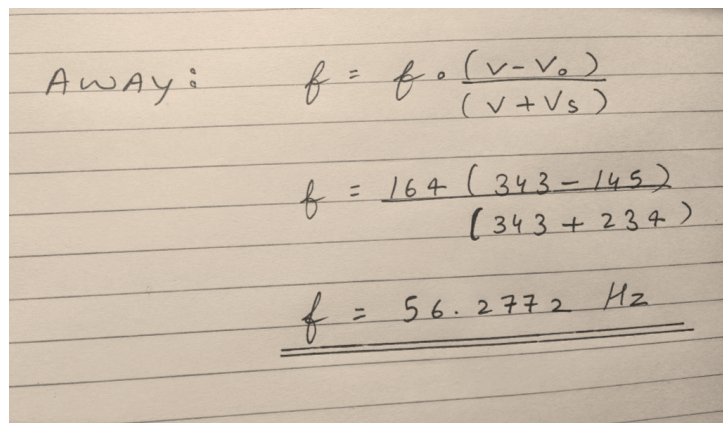 AWAY: f = f₀ (v-v₀)
(v+vs)
f = 164 (343-145)
(343+234)
f = 56.2772 Hz